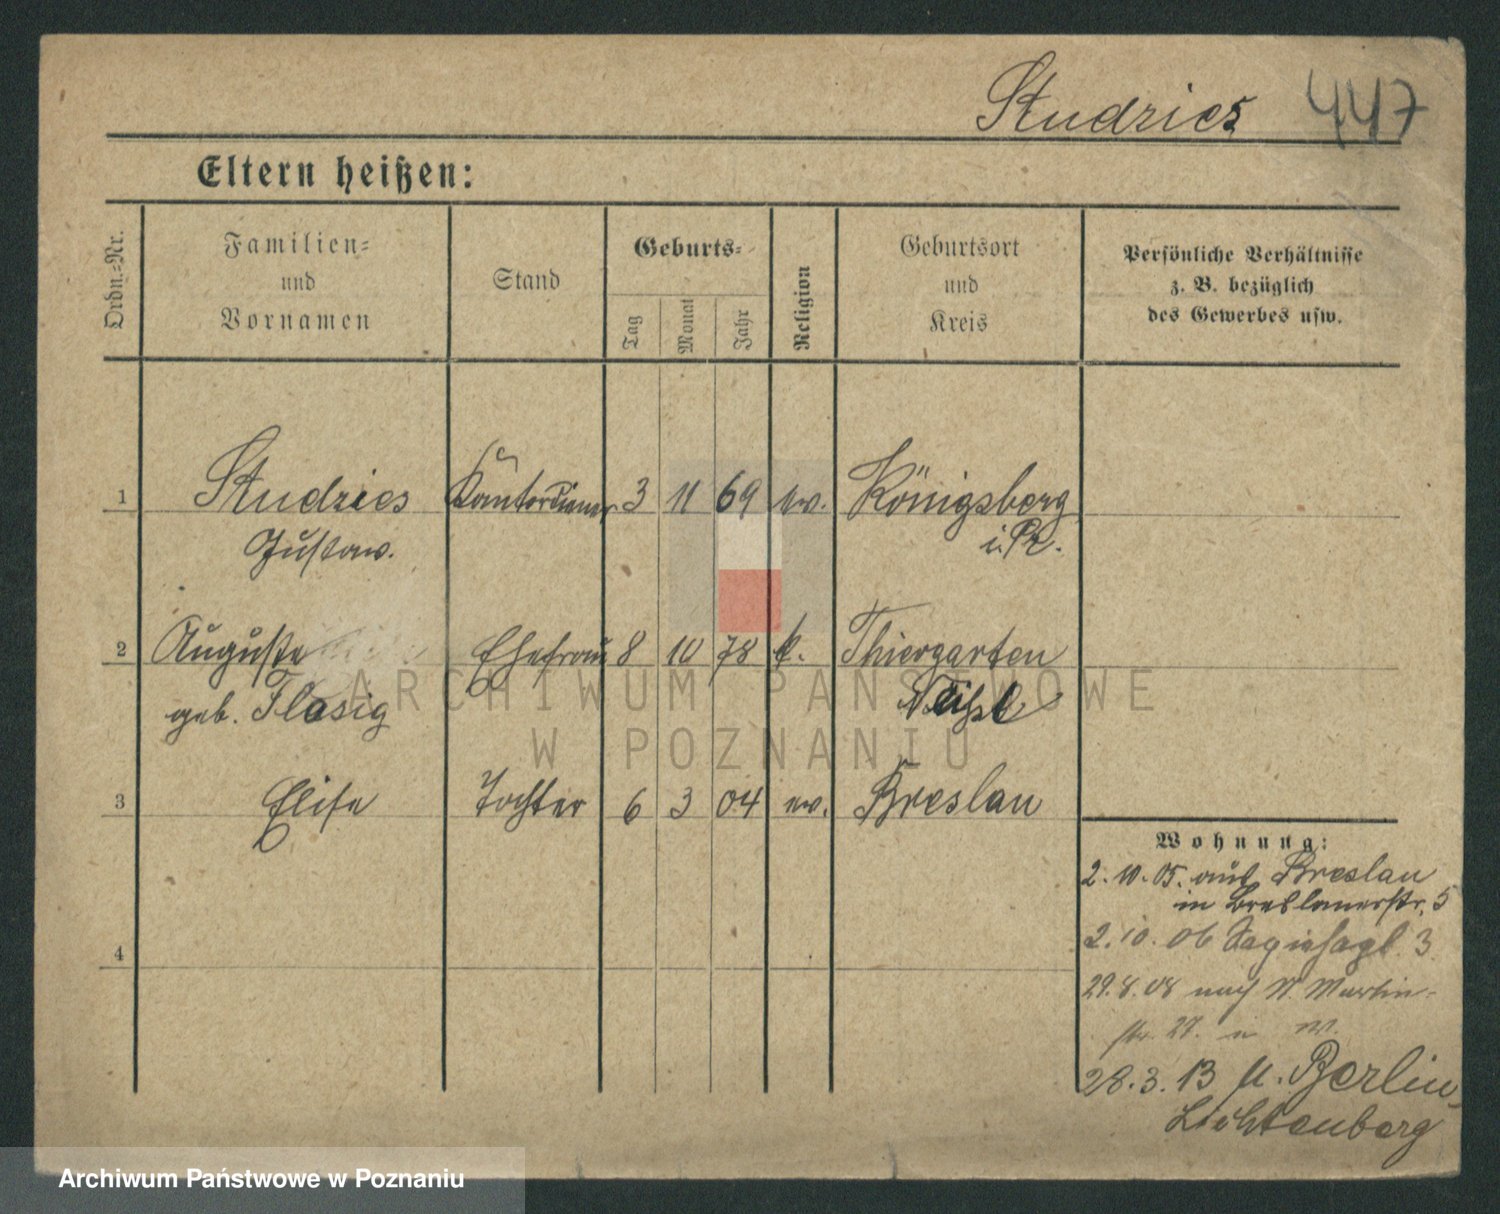 Studries 447
Eltern heißen:
Ordn.-Nr.
Familien-
und
Vornamen
Stand
Geburts-
Tag
Monat
Jahr
Religion
Geburtsort
und
Kreis
Persönliche Verhältnisse
z. B. bezüglich
des Gewerbes usw.
1 Studries Kantordiener 3 11 69 ev. Königsberg
Gustav. i. Pr.
2 Auguste Ehefrau 8 10 78 k. Thiergarten
geb. Flasig
ARCHIWUM PAŃSTWOWE
W POZNANIU
3 Elise Tochter 6 3 04 ev. Breslau
4
Wohnung:
2. 10. 05. aus Breslau
in Breslauerstr. 5
2. 10. 06 3
29. 8. 08 nach St. Martin-
str. 27.
28. 3. 13 n. Berlin-
Lichtenberg
Archiwum Państwowe w Poznaniu